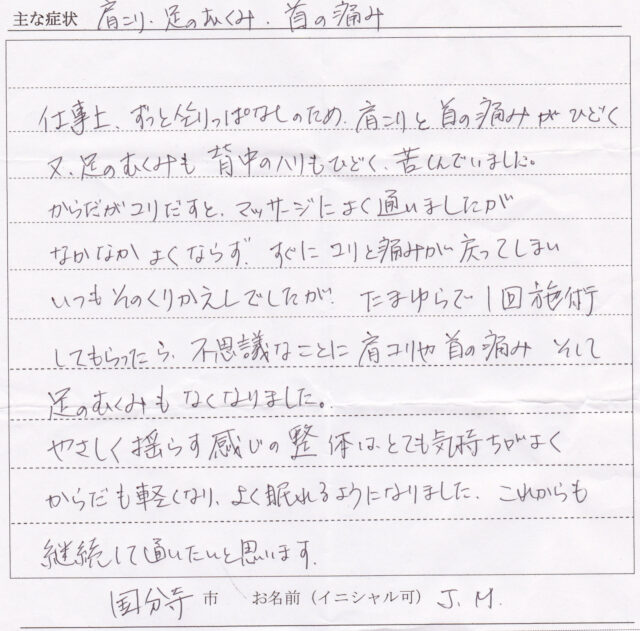 主な症状 肩こり・足のむくみ・首の痛み
仕事上、ずっと座りっぱなしのため、肩こりと首の痛みがひどく
又、足のむくみも背中のハリもひどく、苦しんでいました。
からだがコリだすと、マッサージによく通いましたが
なかなかよくならず、すぐにコリと痛みが戻ってしまい
いつもそのくりかえしでしたが、たまゆらで1回施術
してもらったら、不思議なことに肩コリや首の痛み そして
足のむくみもなくなりました。
やさしく揺らす感じの整体は、とても気持ちがよく
からだも軽くなり、よく眠れるようになりました、これからも
継続して通いたいと思います。
国分寺市 お名前（イニシャル可） J.M.